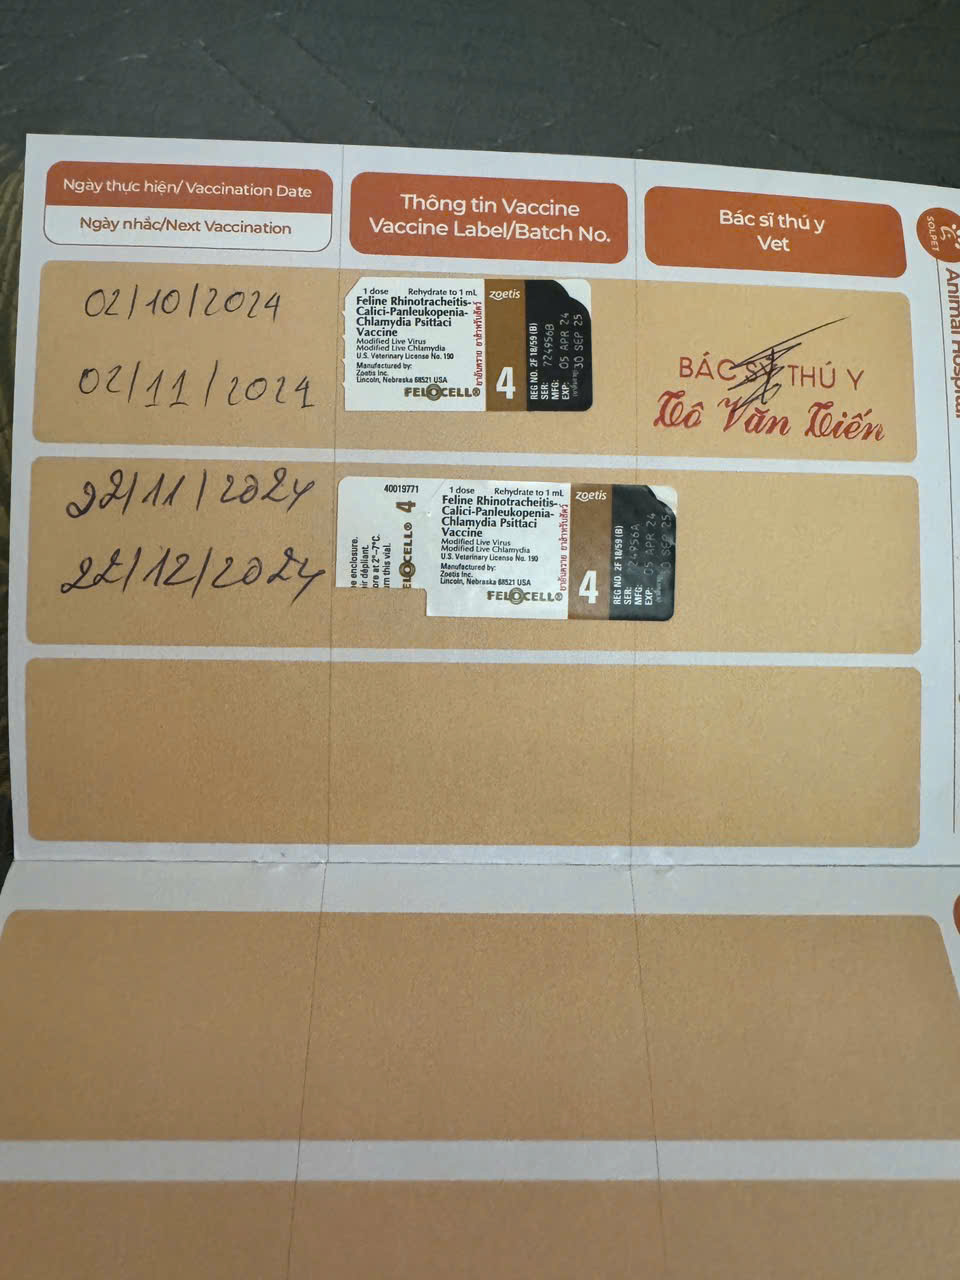 Ngày thực hiện/ Vaccination Date
Ngày nhắc/Next Vaccination
Thông tin Vaccine
Vaccine Label/Batch No.
Bác sĩ thú y
Vet
SOLPET
Animal Hospital
02/10/2024
02/11/2024
1 dose Rehydrate to 1 mL
Feline Rhinotracheitis-
Calici-Panleukopenia-
Chlamydia Psittaci
Vaccine
Modified Live Virus
Modified Live Chlamydia
U.S. Veterinary License No. 190
Manufactured by:
Zoetis Inc.
Lincoln, Nebraska 68521 USA
FELOCELL®
ยาอันตราย ยาสำหรับสัตว์
zoetis
4
REG NO. 2F 18/59 (B)
SER: 724956B
MFG: 05 APR 24
EXP: 30 SEP 25
BÁC SỸ THÚ Y
Tô Văn Tiến
22/11/2024
22/12/2024
40019771
4
ELOCELL®
e enclosure.
ir dépliant.
ore at 2°-7°C.
rn this vial.
1 dose Rehydrate to 1 mL
Feline Rhinotracheitis-
Calici-Panleukopenia-
Chlamydia Psittaci
Vaccine
Modified Live Virus
Modified Live Chlamydia
U.S. Veterinary License No. 190
Manufactured by:
Zoetis Inc.
Lincoln, Nebraska 68521 USA
FELOCELL®
ยาอันตราย ยาสำหรับสัตว์
zoetis
4
REG NO. 2F 18/59 (B)
SER: 24956A
MFG: 05 APR 24
EXP: 0 SEP 25